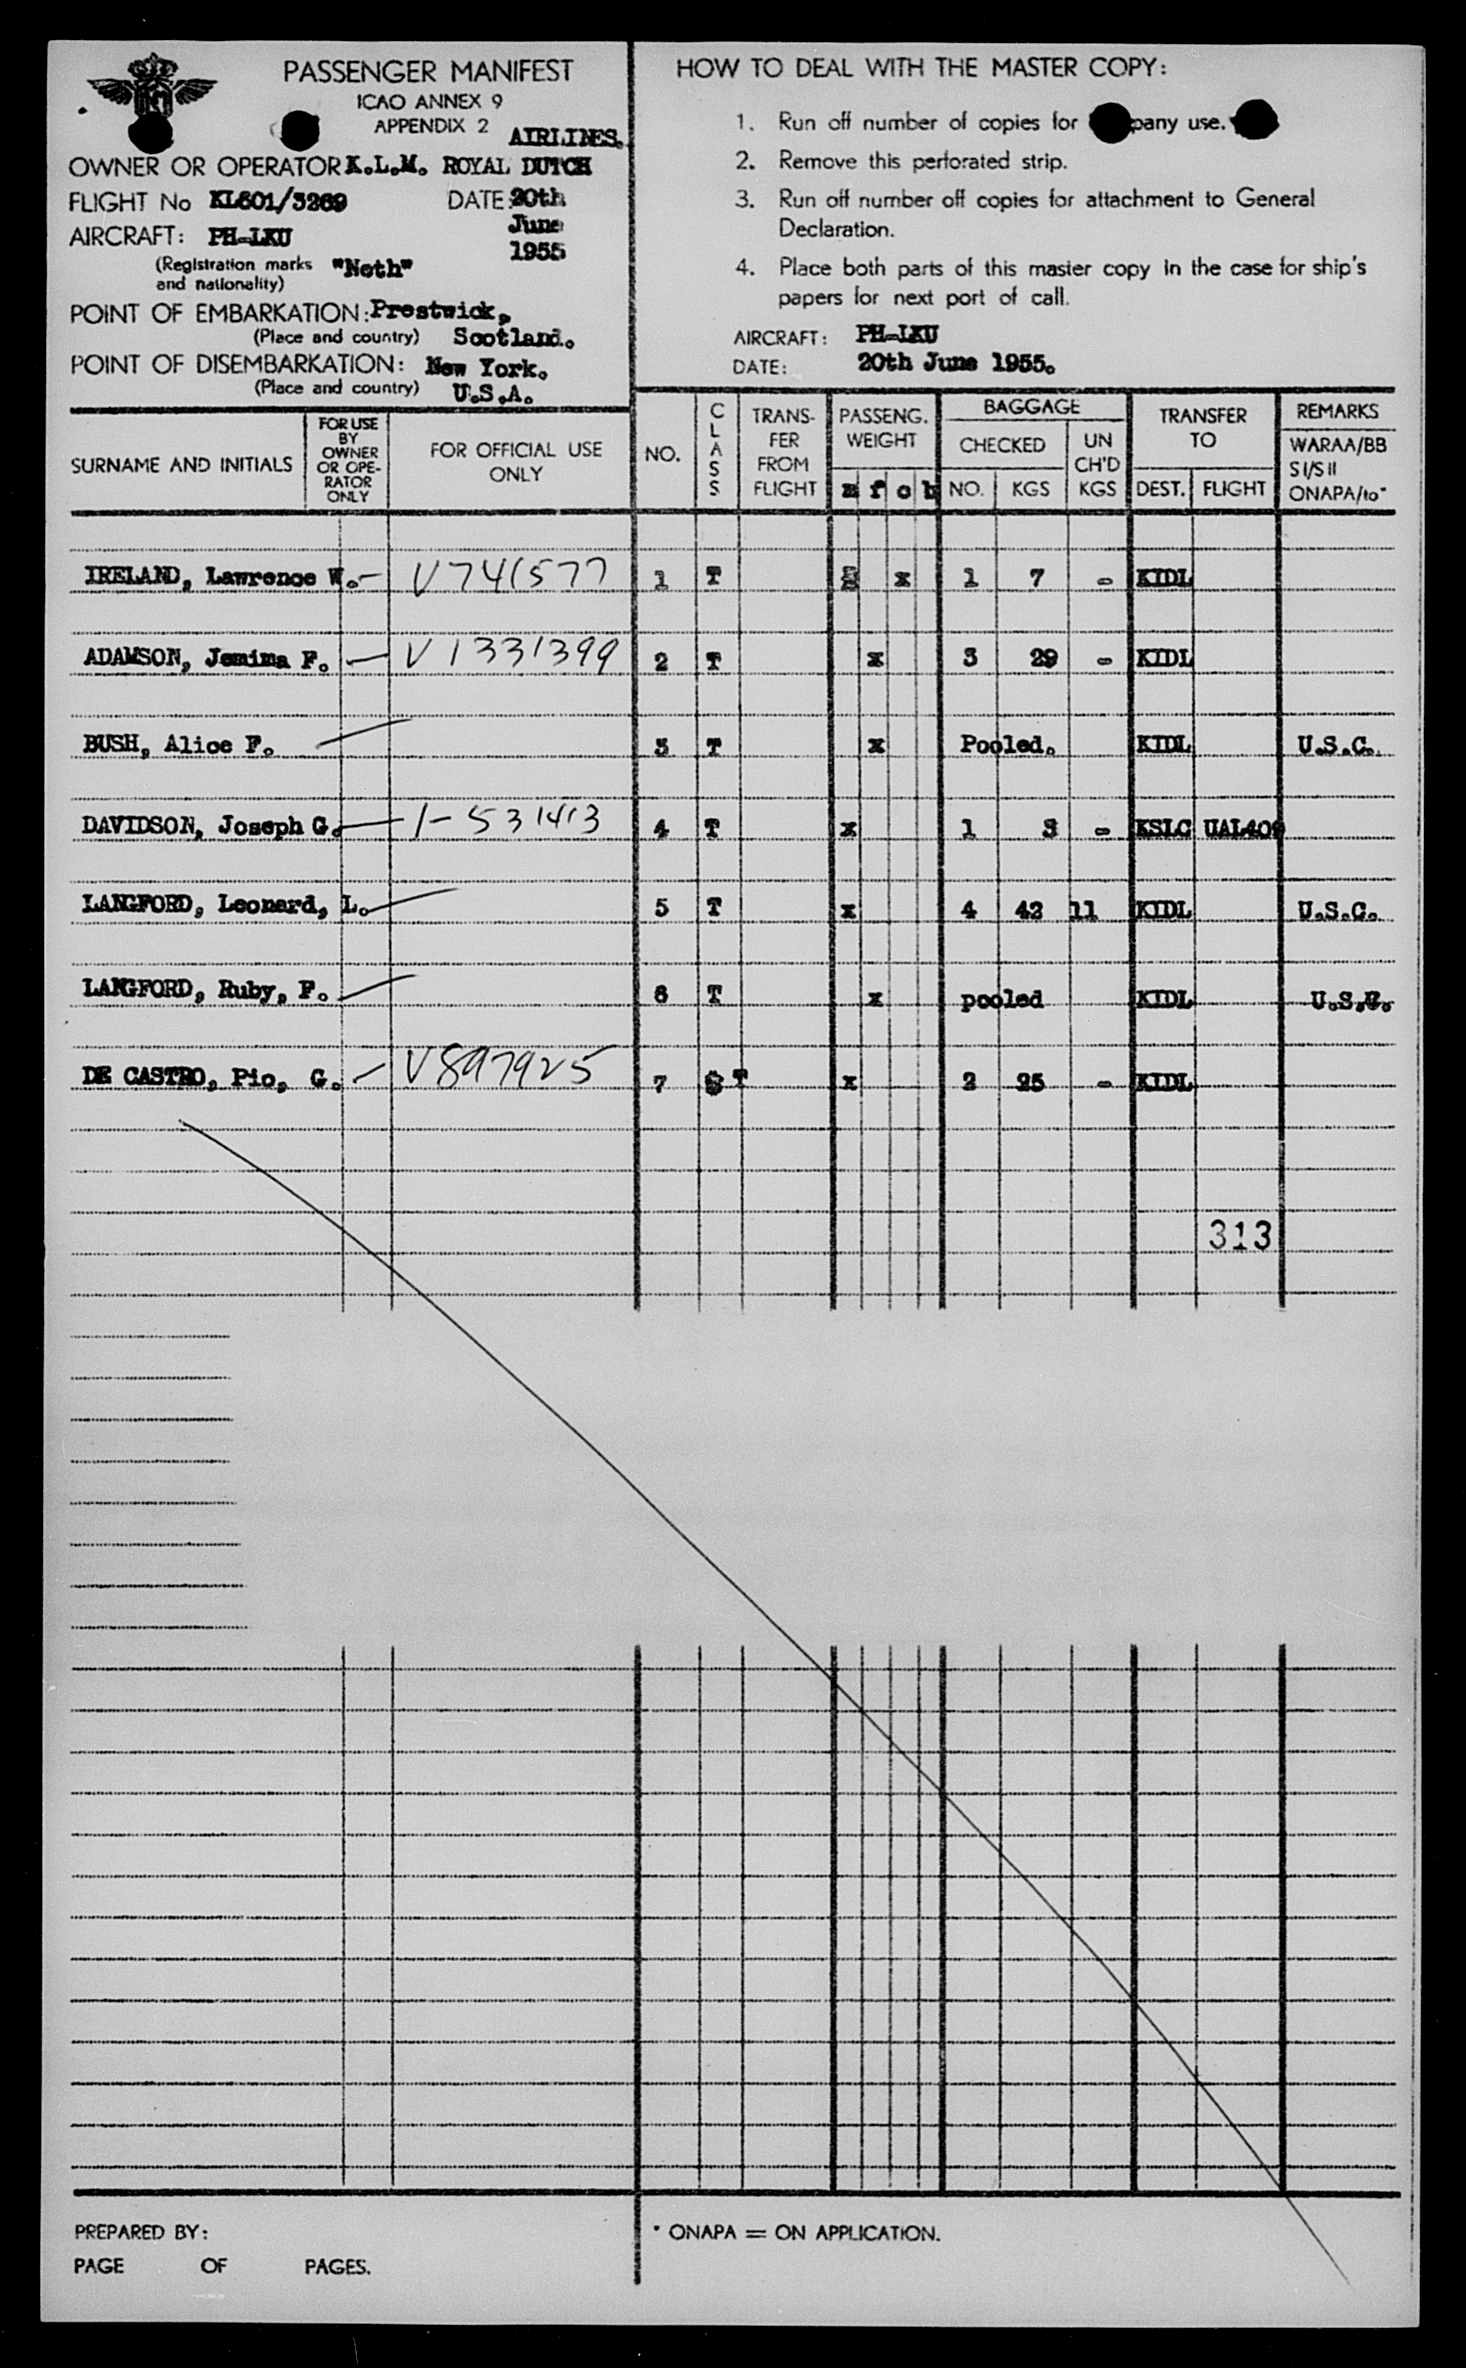 PASSENGER MANIFEST
ICAO ANNEX 9
APPENDIX 2 AIRLINES.
OWNER OR OPERATOR K.L.M. ROYAL DUTCH
FLIGHT No KL601/3269 DATE: 20th
June
1955
AIRCRAFT: PH-LKU
(Registration marks and nationality) "Neth"
POINT OF EMBARKATION: Prestwick,
(Place and country) Scotland.
POINT OF DISEMBARKATION: New York.
(Place and country) U.S.A.
HOW TO DEAL WITH THE MASTER COPY:
1. Run off number of copies for pany use.
2. Remove this perforated strip.
3. Run off number off copies for attachment to General
Declaration.
4. Place both parts of this master copy in the case for ship's
papers for next port of call.
AIRCRAFT: PH-LKU
DATE: 20th June 1955.
SURNAME AND INITIALS FOR USE BY OWNER OR OPE-RATOR ONLY FOR OFFICIAL USE ONLY NO. CLASS TRANS-FER FROM FLIGHT PASSENG. WEIGHT m f c b BAGGAGE CHECKED NO. KGS UN CH'D KGS TRANSFER TO DEST. FLIGHT REMARKS WARAA/BB SI/SII ONAPA/to*
IRELAND, Lawrence W.- V741577 1 T x 1 7 - KIDL
ADAMSON, Jemima F. - V1331399 2 T x 3 29 - KIDL
BUSH, Alice F. 3 T x Pooled. KIDL U.S.C.
DAVIDSON, Joseph G. 1-531413 4 T x 1 3 - KSLC UAL409
LANGFORD, Leonard, L. 5 T x 4 42 11 KIDL U.S.C.
LANGFORD, Ruby, F. 6 T x pooled KIDL U.S.C.
DE CASTRO, Pio, G. - V897925 7 T x 2 25 - KIDL
313
PREPARED BY:
PAGE OF PAGES.
* ONAPA = ON APPLICATION.